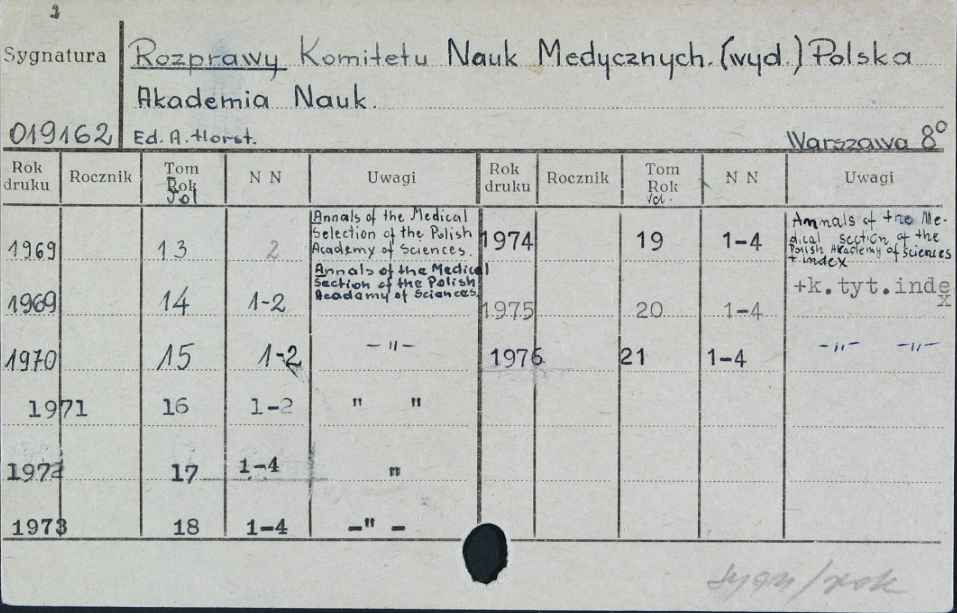 2
Sygnatura
Rozprawy Komitetu Nauk Medycznych. (wyd.) Polska
Akademia Nauk.
019162 Ed. A. Horst. Warszawa 8°
Rok druku Rocznik Tom Rok Vol N N Uwagi Rok druku Rocznik Tom Rok Vol. N N Uwagi
1969 13 2 Annals of the Medical Selection of the Polish Academy of Sciences. 1974 19 1-4 Annals of the Medical section of the Polish Academy of Sciences + index
1969 14 1-2 Annals of the Medical Section of the Polish Academy of Sciences. 1975 20 1-4 +k.tyt.index
1970 15 1-2 -"- 1976 21 1-4 -"- -"-
1971 16 1-2 " "
1972 17 1-4 "
1973 18 1-4 -"-
sygn/rok